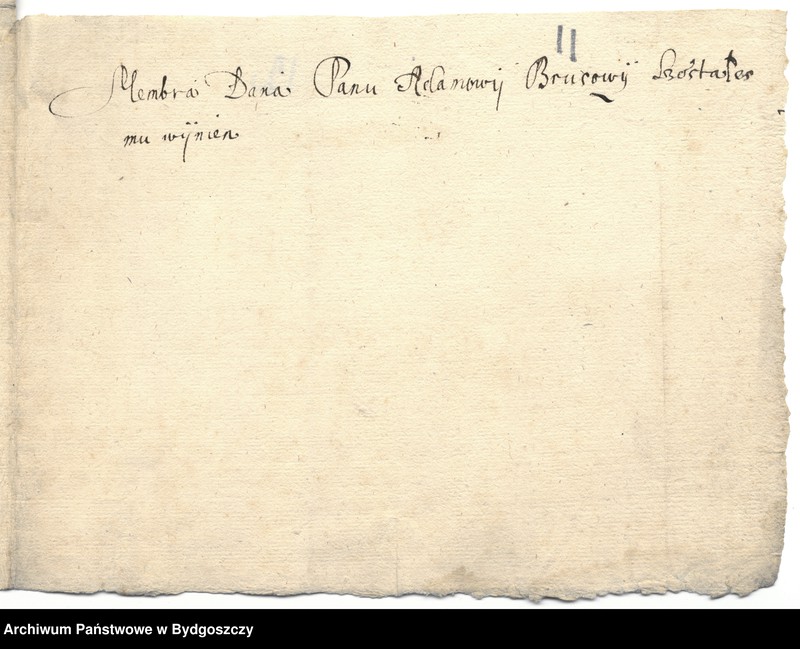 11
Membra Dana Panu Adamowij Brusowij
mu wijnien
Archiwum Państwowe w Bydgoszczy